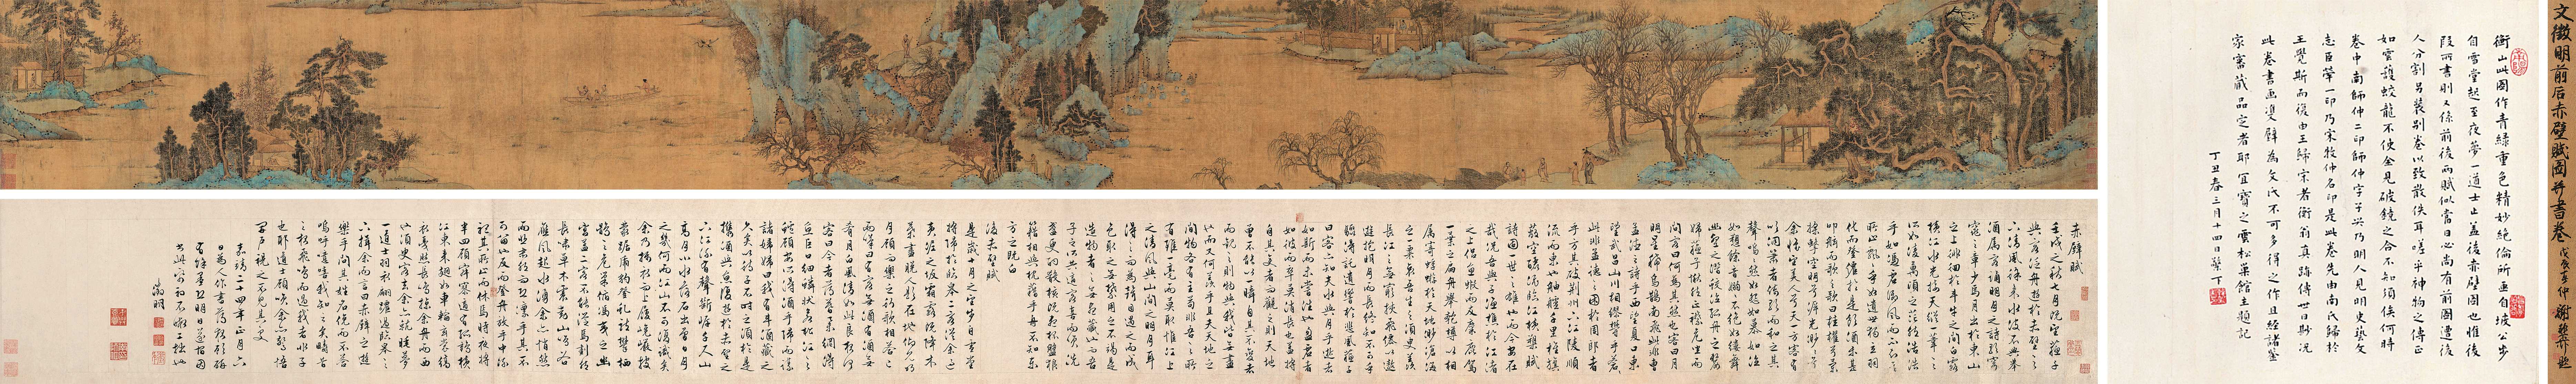 文徵明前后赤壁賦圖并書卷
衡山此圖作青綠重色精妙絕倫所画自坡公步
自雪堂起至夜夢一道士止蓋後赤壁圖也惟後
段所書則又係前後兩賦似當日必尚有前圖遭後
人分割另裝別卷以致散佚耳嗟乎神物之傳正
如雲護蛟龍不使全見破鏡之合不知須俟何時
卷中南師仲二印師仲字子興乃明人見明史藝文
志臣犖一印乃宋牧仲名印是此卷先由南氏歸於
王覺斯而後由王歸宋者衡翁真跡傳世日尠況
此卷書画雙璧為文氏不可多得之作且經諸鑒
家審藏品定者耶宜寶之雲松巢館主題記
丁丑春三月十四日
赤壁賦
壬戌之秋七月既望蘇子
與客泛舟遊於赤壁之下
清風徐來水波不興舉
酒屬客誦明月之詩歌窈
窕之章少焉月出於東山
之上徘徊於斗牛之間白露
橫江水光接天縱一葦之
所如凌萬頃之茫然浩浩
乎如馮虛御風而不知其
所止飄飄乎如遺世獨立羽
化而登僊於是飲酒樂甚
扣舷而歌之歌曰桂櫂兮蘭
槳擊空明兮泝流光渺渺兮
余懷望美人兮天一方客有
吹洞簫者倚歌而和之其
聲嗚嗚然如怨如慕如泣
如愬餘音嫋嫋不絕如縷舞
幽壑之潛蛟泣孤舟之嫠
婦蘇子愀然正襟危坐而
問客曰何為其然也客曰月
明星稀烏鵲南飛此非曹
孟德之詩乎西望夏口東
望武昌山川相繆鬱乎蒼蒼
此非孟德之困於周郎者
乎方其破荊州下江陵順
流而東也舳艫千里旌旗
蔽空釃酒臨江橫槊賦
詩固一世之雄也而今安在
哉況吾與子漁樵於江渚
之上侶魚蝦而友麋鹿駕
一葉之扁舟舉匏樽以相
屬寄蜉蝣於天地渺滄海
之一粟哀吾生之須臾羨
長江之無窮挾飛僊以遨
遊抱明月而長終知不可乎
驟得託遺響於悲風蘇子
曰客亦知夫水與月乎逝者
如斯而未嘗往也盈虛者
如彼而卒莫消長也蓋將
自其變者而觀之則天地
曾不能以一瞬自其不變者
而觀之則物與我皆無盡
也而又何羨乎且夫天地之
間物各有主苟非吾之所
有雖一毫而莫取惟江上
之清風與山間之明月耳
得之而為聲目遇之而成
色取之無禁用之不竭是
造物者之無盡藏也而吾與
子之所共適客喜而笑洗
盞更酌肴核既盡杯盤狼
籍相與枕藉乎舟中不知東
方之既白
後赤壁賦
是歲十月之望步自雪堂
將歸于臨皋二客從余過
黃泥之坂霜露既降木
葉盡脫人影在地仰見明
月顧而樂之行歌相答已
而嘆曰有客無酒有酒無
肴月白風清如此良夜何
客曰今者薄暮舉網得
魚巨口細鱗狀如松江之
鱸顧安所得酒乎歸而謀
諸婦婦曰我有斗酒藏之
久矣以待子不時之須於是
攜酒與魚復遊於赤壁之
下江流有聲斷岸千尺山
高月小水落石出曾日月
之幾何而江山不可復識矣
余乃攝衣而上履巉巖披
蒙茸踞虎豹登虬龍攀栖
鶻之危巢俯馮夷之幽
宮蓋二客不能從焉劃然
長嘯草木震動山鳴谷
應風起水涌余亦悄然
而悲肅然而恐凜乎其不
可留也反而登舟放乎中流
聽其所止而休焉時夜將
半四顧寂寥適有孤鶴橫
江東來翅如車輪玄裳縞
衣戛然長鳴掠余舟而西
也須臾客去余亦就睡夢
一道士羽衣翩躚過臨皋之
下揖余而言曰赤壁之遊
樂乎問其姓名俛而不答
嗚呼噫嘻我知之矣疇昔
之夜飛鳴而過我者非子
也耶道士顧笑余亦驚悟
開戶視之不見其處
嘉靖二十四年正月六
徵明